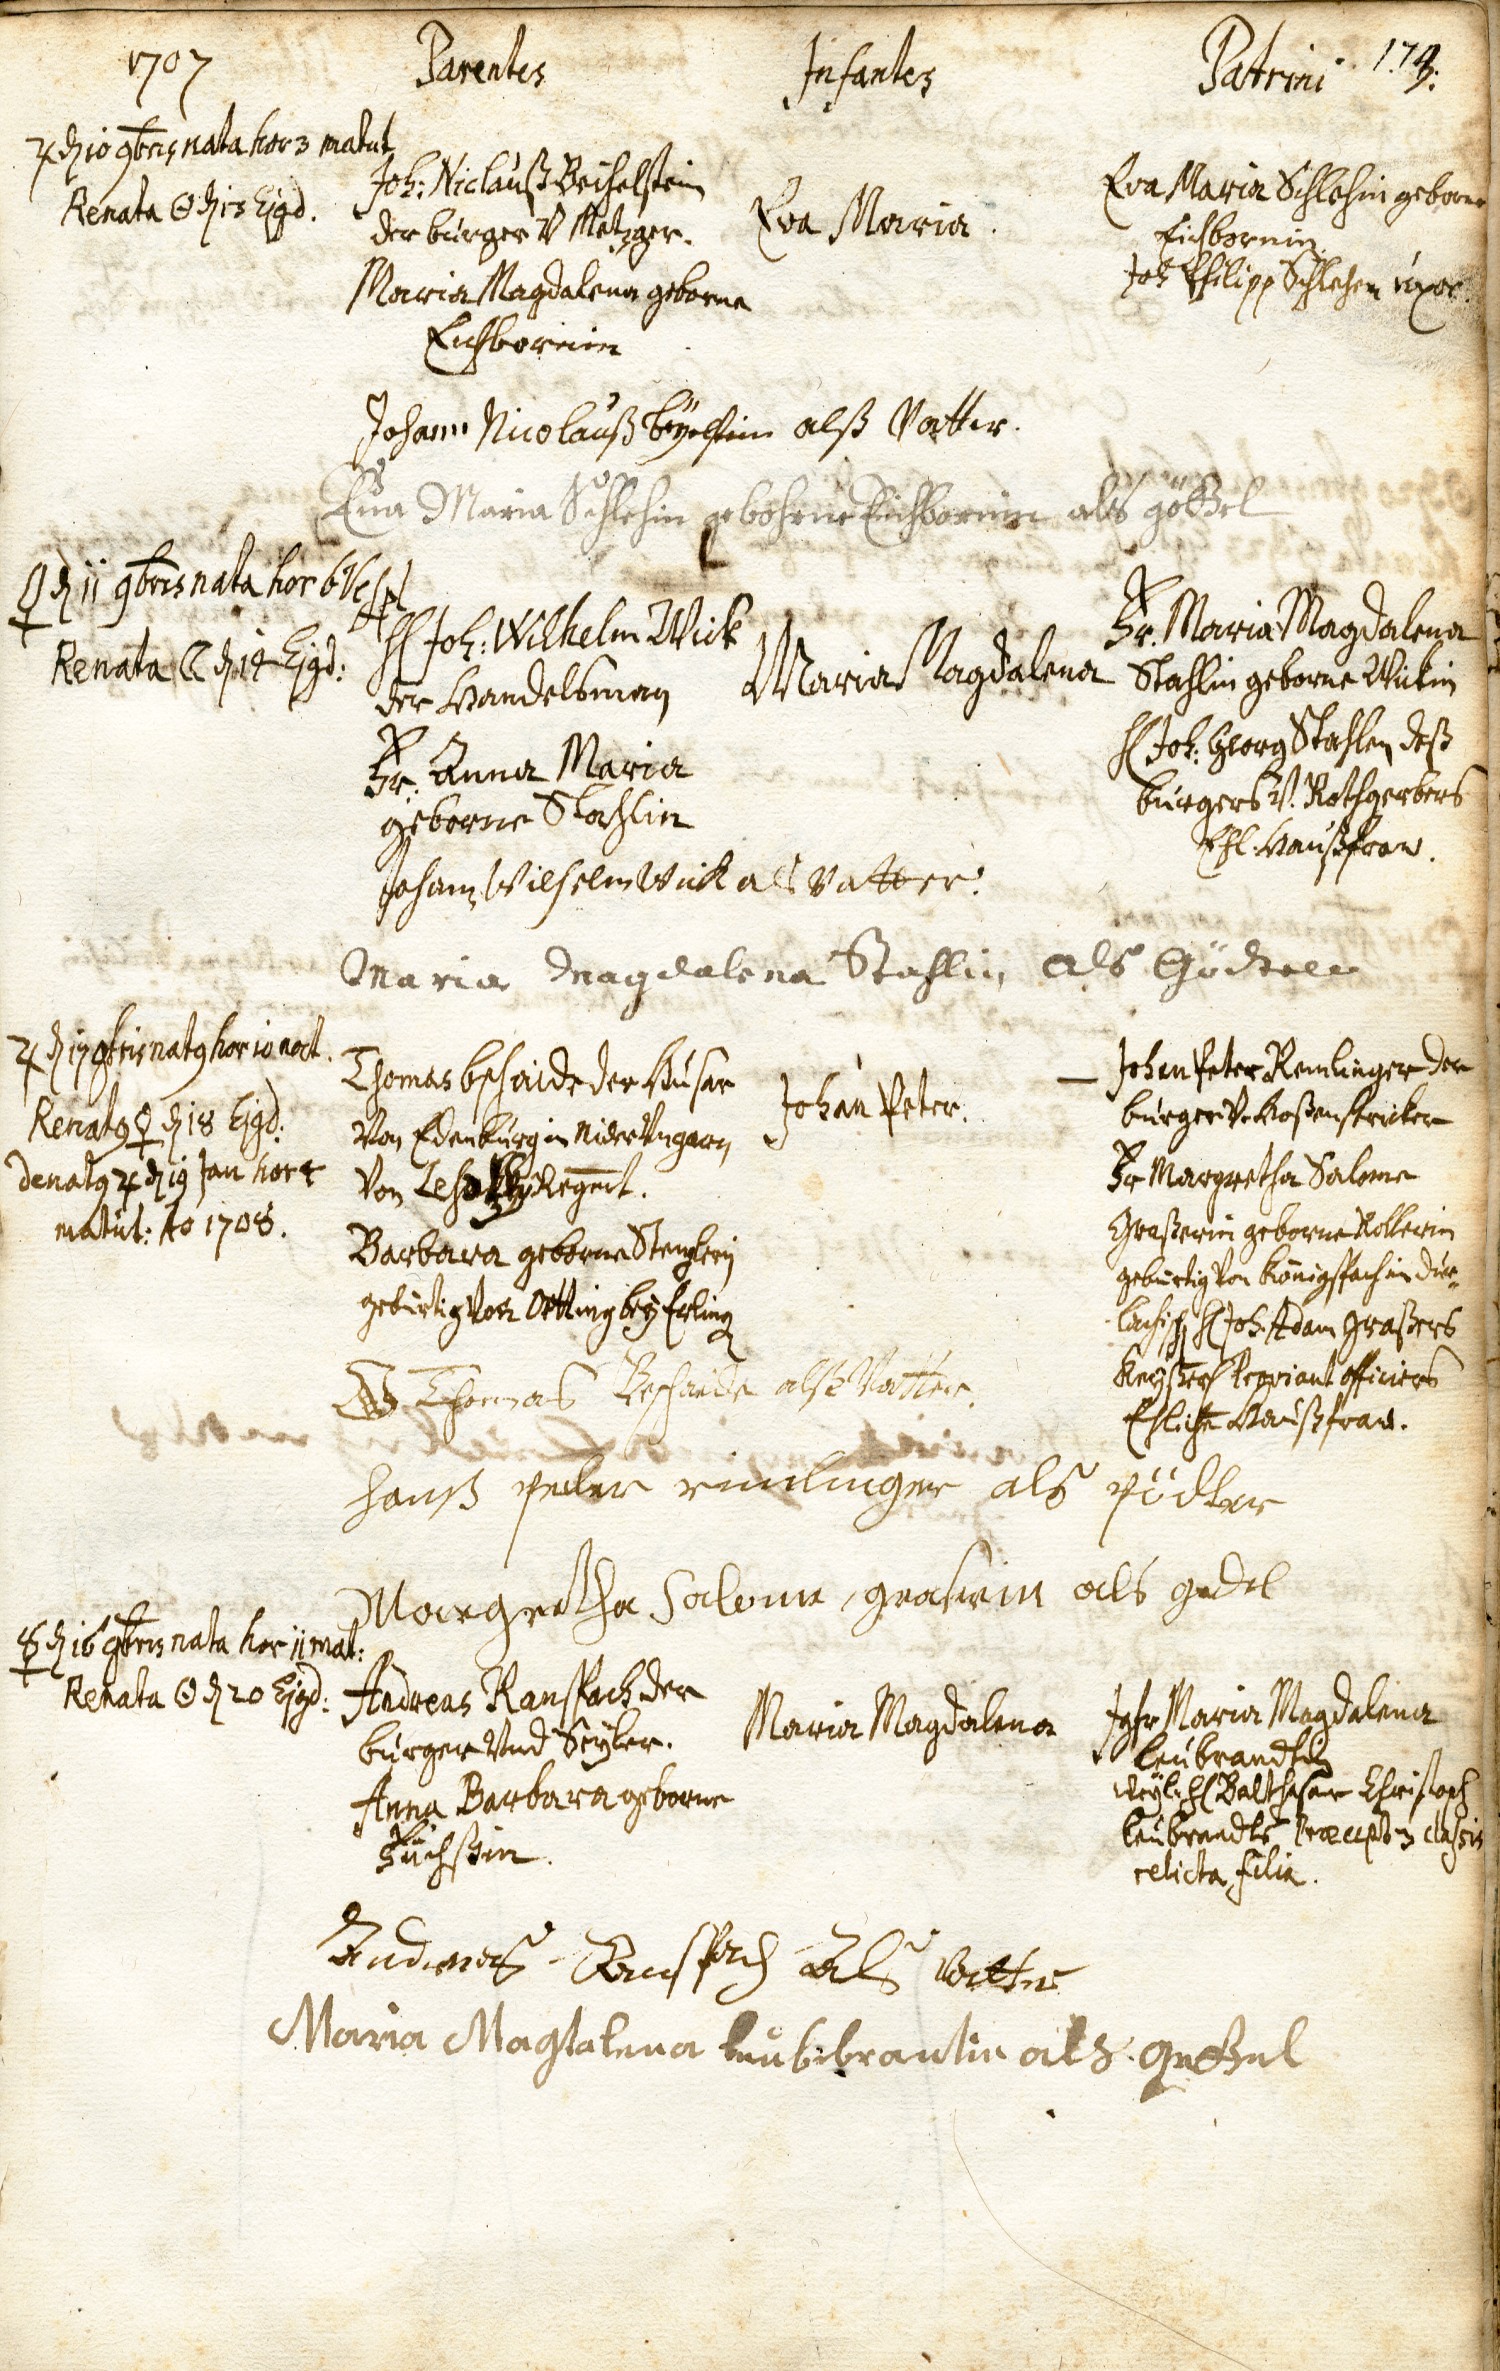 1707 Parentes Infantes Patrini 174.
♃ d 10 9bris nata hor 3 matut
Renata ☉ d 13 Ejsd.
Joh: Niclauß Beichelstein
der burger V Metzger.
Maria Magdalena geborne
Eichbornin
Eva Maria.
Eva Maria Schlehin geborne
Eichbornin
Joh Philipp Schlehen uxor.
Johann Nicolauß als Vatter.
Eua Maria Schlehin gebohrne Eichbornin als göttel
♀ d 11 9bris nata hor 6 Vesp
Renata ☾ d 14 Ejsd:
H Joh: Wilhelm Wick
der Handelsman
Fr. Anna Maria
geborne Stahlin
Maria Magdalena
Fr. Maria Magdalena
Stahlin geborne Wickin
H Joh: Georg Stahlen deß
burgers V. Rothgerbers
Ehl. Haußfraw.
Johan Wilhelm Wick als Vatter.
Maria Magdalena Stahlin als Gödtele
♃ d 17 9bris nat9 hor 10 noct.
Renat9 ♀ d 18 Ejsd:
denat9 ♃ d 19 Jan hor 4
matut: Ao 1708.
Thomas bschaide der Husar
Von Edenburg in Nider Vngarn
Von Regmt.
Barbara geborne
gebürtig Von Otting bey
Johan Peter.
Johan Peter Remlinger der
burger V. Hoßenstricker
Fr Margretha Salome
Graßerin geborne Kollerin
gebürtig Von Königspach in Dur-
lachisch H Joh. Adam Graßers
Keyßerl Proviant officiers
Ehliche Haußfraw.
Thomas Bschaide alß Vatter.
hanß peter rimlinger als pödter
Margretha Salome graserin als gedel
☿ d 16 9bris nata hor 11 mat:
Renata ☉ d 20 Ejsd:
Andreas Ranspach der
burger Vnd Seyler.
Anna Barbara geborne
Füchßin.
Maria Magdalena
Jgfr Maria Magdalena
Leubrandtin
Weyl. H Balthasar Christoph
Leubrandts Præcept 3 classis
relicta filia.
Andreas Ranspach Als Vatter
Maria Magtalena leubbrantin als gettel